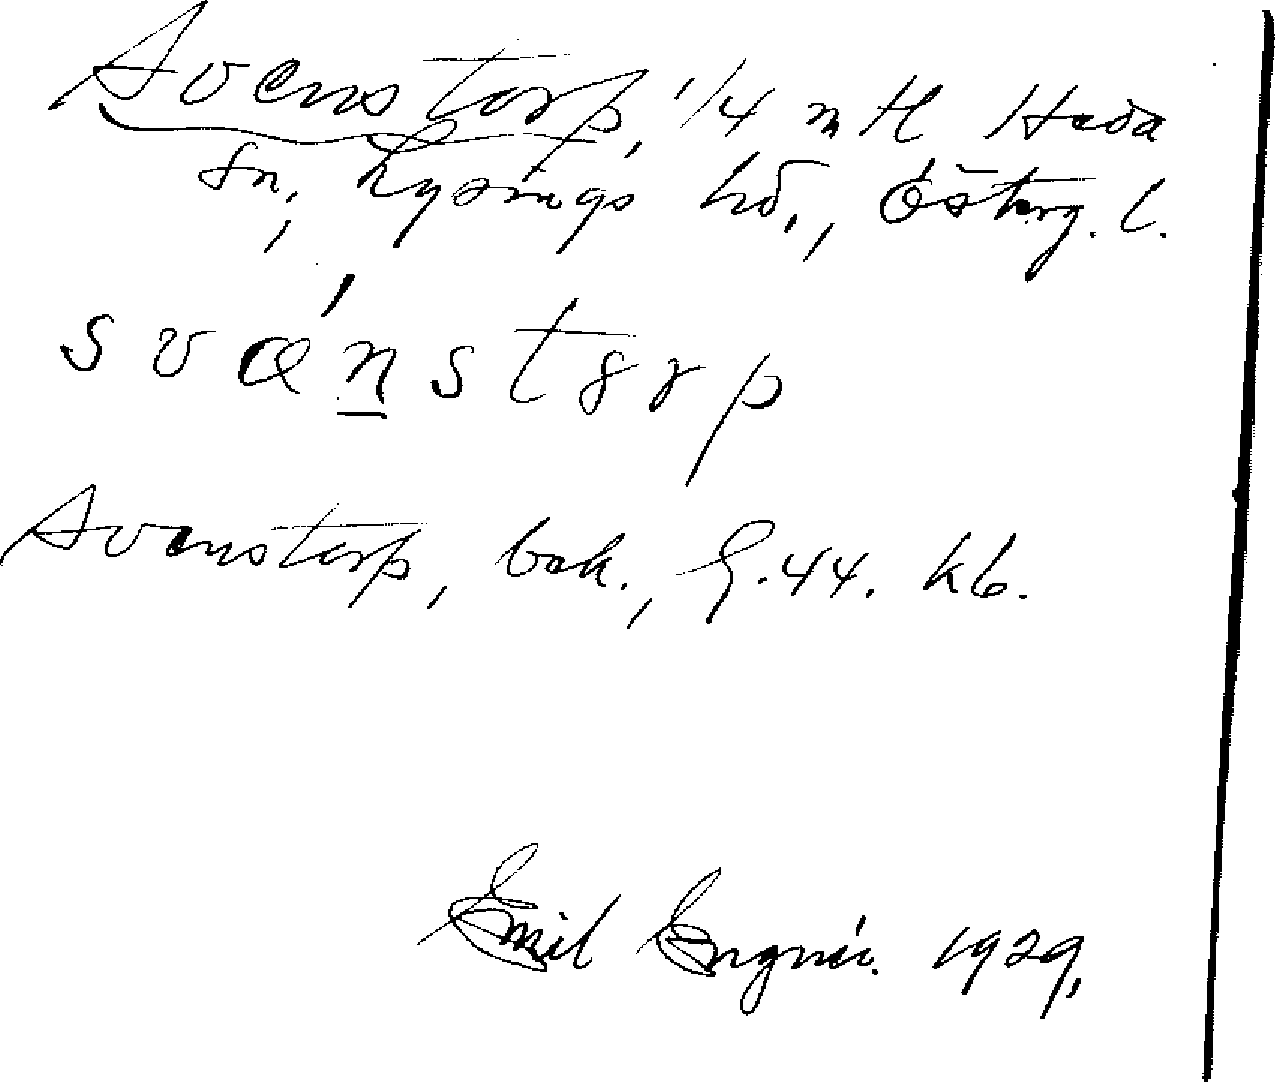 Svenstorp, 1/4 mtl Heda
sn, Lysings hd., Österg. l.
svǽnstørp
Svenstorp, bok., G. 44. kb.
Emil 1929.